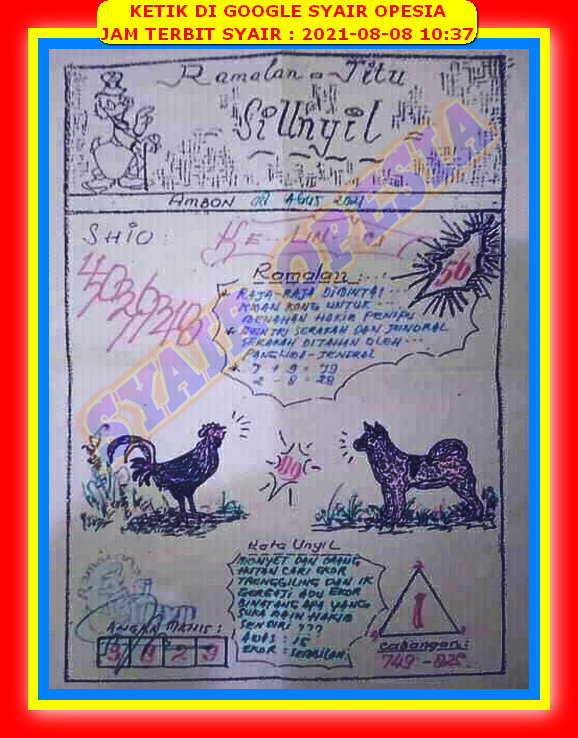 KETIK DI GOOGLE SYAIR OPESIA
JAM TERBIT SYAIR : 2021-08-08 10:37
Ramalan Jitu
SiUnyil
AMBON 08 AGUS 2021
SHIO :
56
Ramalan :
RAJA-RAJA DIMINTAI
KMAN KONG UNTUK
MENAHAN HAKIR PENIPU
SERAKAH DAN JENDRAL
SERAKAH DITAHAN OLEH
PANGLIMA-JENDRAL
7 + 9 = 79
2 - 8 = 28
SYAIR OPESIA
Kata Unyil
MONYET DAN ORANG
HUTAN CARI EKOR
TRENGGILING DAN IK
GERGAJI ADU EKOR
BINATANG APA YANG
SUKA MAIN HAKIM
SENDIRI ???
AWAS : 15
EKOR : SEMBILAN
1
ANGKA MANIS :
2 9
Cabangan :
749 - 825